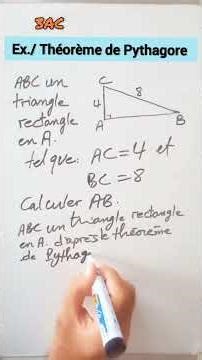 3AC
Ex./ Théorème de Pythagore
ABC un
triangle
rectangle
en A.
tel que: AC=4 et
BC=8
C
8
4
A
B
Calculer AB.
ABC un triangle rectangle
en A. d'après le théorème
de Pythag